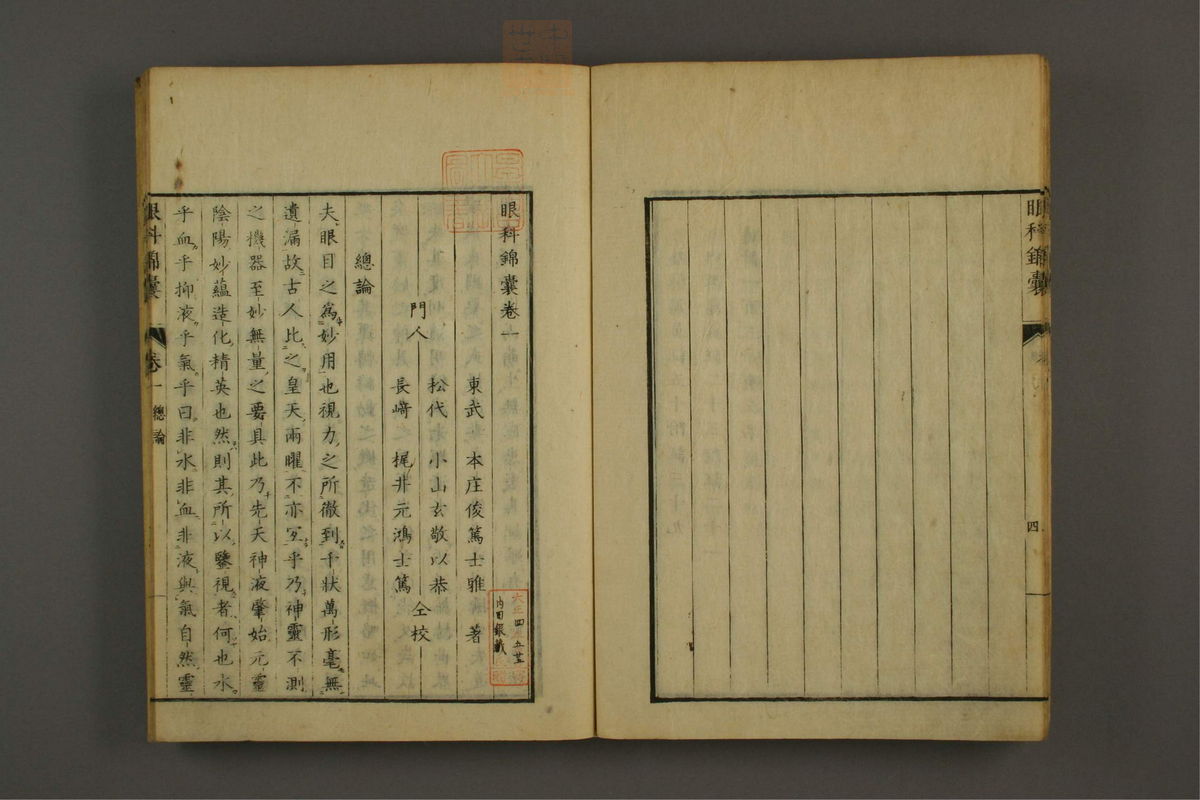 眼科錦囊
四
眼科錦囊卷一
東武 本庄俊篤士雅 著
門人
松代 小山玄敬以恭
長﨑 梶井元鴻士篤
仝校
總論
夫眼目之爲妙用也視力之所徹到千狀萬形毫無
遺漏故古人比之皇天兩曜不亦宜乎乃神靈不測
之機器至妙無量之要具此乃先天神液肇始元靈
陰陽妙蘊造化精英也然則其所以鑒視者何也水
乎血乎抑液乎氣乎曰非水非血非液與氣自然靈
眼科錦囊
卷一
總論
大正
四
內田